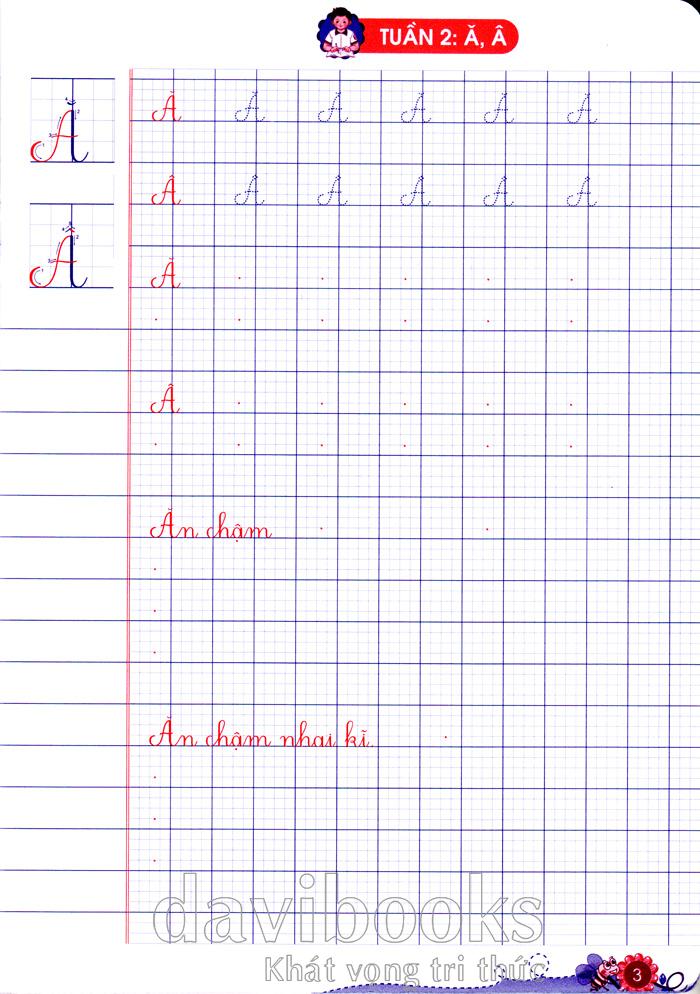 TUẦN 2: Ă, Â
Ă Ă Ă Ă Ă Ă Ă
Â Â Â Â Â Â Â
Ă
Â
Ăn chậm
Ăn chậm nhai kĩ.
davibooks
Khát vọng tri thức
3